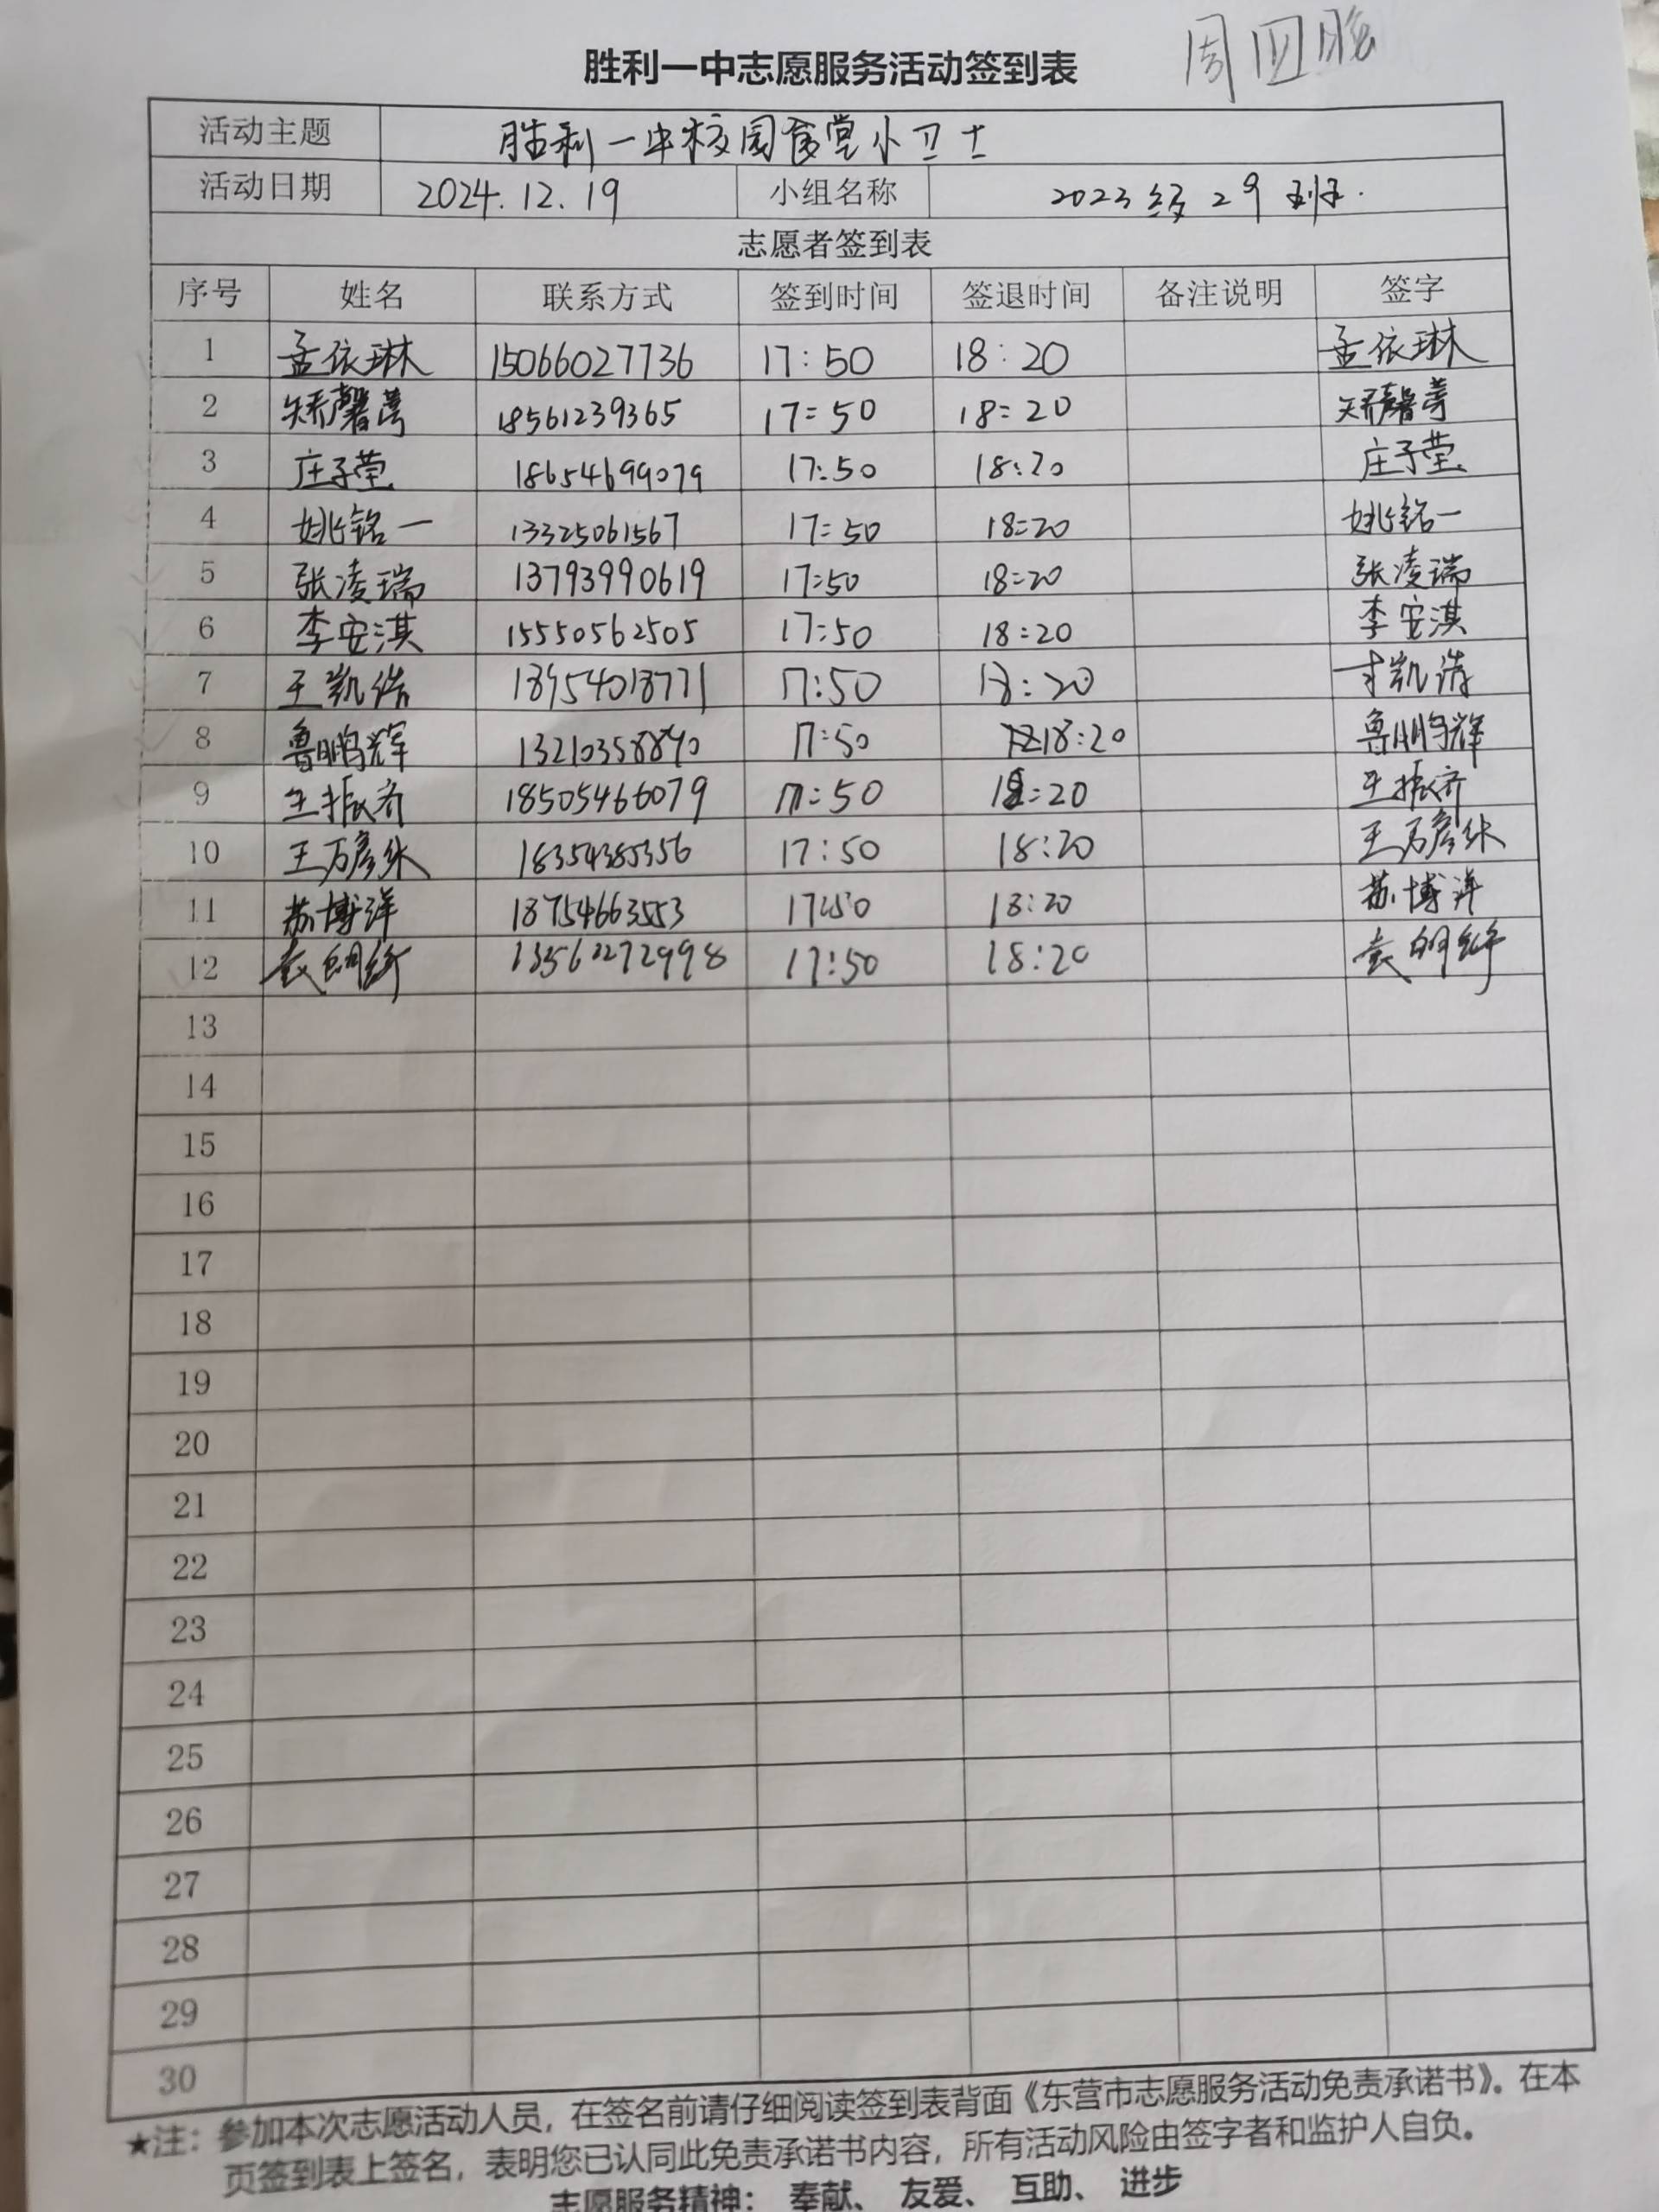 周四晚
胜利一中志愿服务活动签到表
活动主题 胜利一中校园食堂小卫士
活动日期 2024.12.19 小组名称 2023级29班.
志愿者签到表
序号 姓名 联系方式 签到时间 签退时间 备注说明 签字
1 孟依琳 15066027736 17:50 18:20 孟依琳
2 矫馨 18561239365 17:50 18:20 矫馨
3 庄子莹 18654699079 17:50 18:20 庄子莹
4 姚铭一 13325061567 17:50 18:20 姚铭一
5 张凌瑞 13793990619 17:50 18:20 张凌瑞
6 李安淇 15550562505 17:50 18:20 李安淇
7 王凯浩 18954018771 17:50 18:20 王凯浩
8 鲁鹏辉 17:50 18:20 鲁鹏辉
9 王振齐 18505466079 17:50 18:20 王振齐
10 王万彦 18354385356 17:50 18:20 王万彦
11 苏博洋 18754663553 17:50 18:20 苏博洋
12 袁 17:50 18:20 袁
13
14
15
16
17
18
19
20
21
22
23
24
25
26
27
28
29
30
★注：参加本次志愿活动人员，在签名前请仔细阅读签到表背面《东营市志愿服务活动免责承诺书》。在本
页签到表上签名，表明您已认同此免责承诺书内容，所有活动风险由签字者和监护人自负。
志愿服务精神： 奉献、 友爱、 互助、 进步